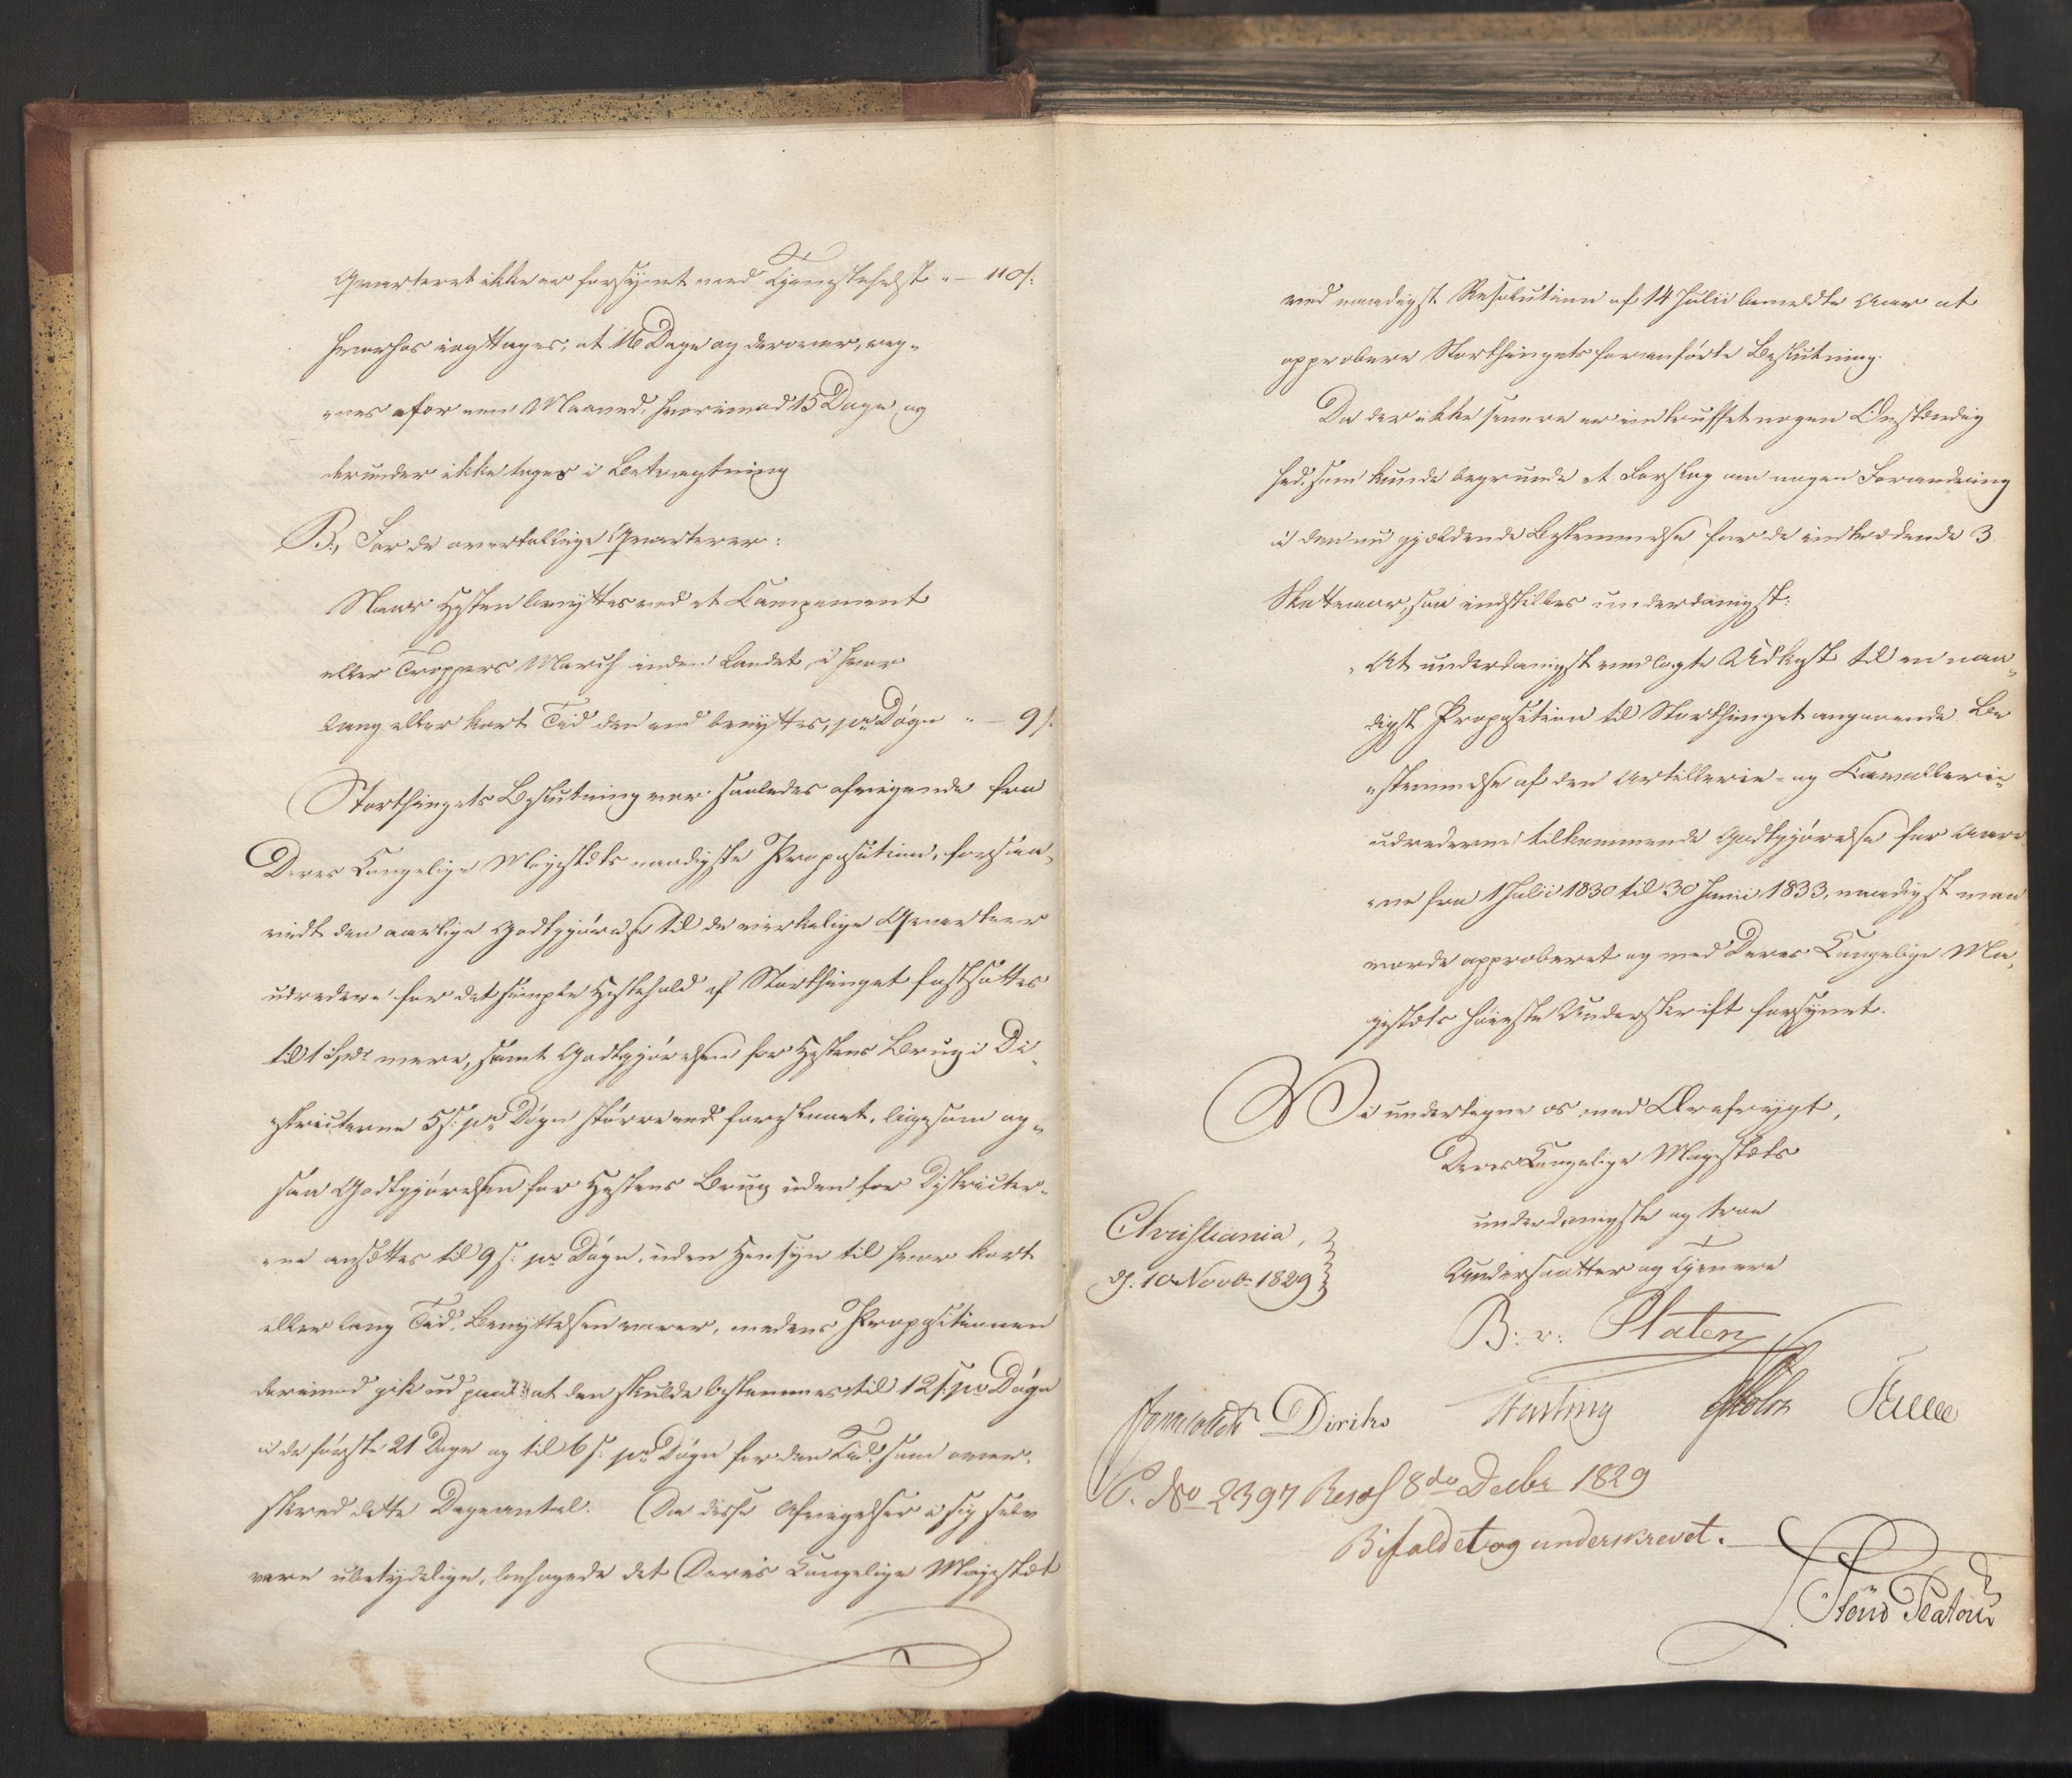 Qvarteret ikke er forsynet med Tjenestehest " — 110 s:
hvorhos iagttages, at 16 Dage og derover, reg-
nes for een Maaned, hvorimod 15 Dage og
derunder ikke tages i Betragtning
B., For de overtallige Qvarterer:
Naar Hesten benyttes ved et Campement
eller Troppers March inden Landet, i hvor
lang eller kort Tid den end benyttes, pr Døgn " — 9 s.
Storthingets Beslutning var saaledes afvigende fra
Deres Kongelige Majestæts naadigste Proposition, forsaa-
vidt den aarlige Godtgjørelse til de virkelige Qvarteer
udredere for det simple Hestehold af Storthinget fastsattes
til 1 Spd mere, samt Godtgjørelsen for Hestens Brug i Di-
stricterne 5 s: pr Døgn større end foreslaaet, ligesom og-
saa Godtgjørelsen for Hestens Brug uden for Districter-
ne ansattes til 9 s: pr Døgn, uden Hensyn til hvor kort
eller lang Tid Benyttelsen varer, medens Propositionen
derimod gik ud paa at den skulde bestemmes til 12 s. pr Døgn
i de første 21 Dage og til 6 s: pr Døgn for den Tid som over-
skred dette Dageantal. Da disse Afvigelser i sig selv
vare ubetydelige, behagede det Deres Kongelige Majestæt
ved naadigst Resolution af 14 Julii bemeldte Aar at
approbere Storthingets foranførte Beslutning.
Da der ikke senere er indtruffet nogen Omstændig
hed, som kunde begrunde et Forslag om nogen Forandring
i den nu gjældende Bestemmelse for de indtrædende 3
Skatteaar, saa indstilles underdanigst:
At underdanigst vedlagte Udkast til en naa-
digst Proposition til Storthinget angaaende Be
stemmelse af den Artillerie- og Kavallerie-
udrederne tilkommende Godtgjørelse for Aare
ne fra 1 Julii 1830 til 30 Junii 1833, naadigst maa
vorde approberet og med Deres Kongelige Ma-
jestæts høieste Underskrift forsynet.
Vi undertegne os med Ærefrygt,
Deres Kongelige Majestæts
underdanigste og troe
Christiania,
d. 10 Novbr 1829
Undersaatter og Tjenere
B: v: Platen
Diriks Hasting Holst
P. No 2397 Resol 8de Decbr 1829
Bifaldet og underskrevet.